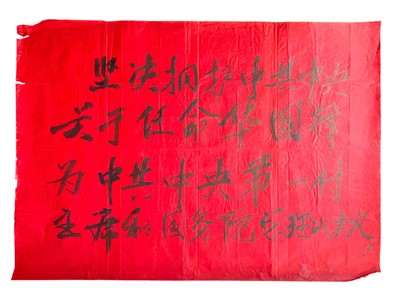 坚决拥护中共中央
关于任命华国锋
为中共中央第一付
主席和国务院总理的决议